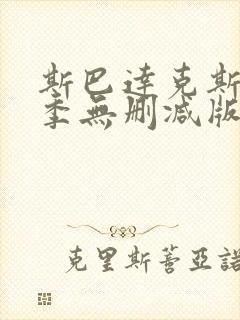 斯巴達克斯
季無刪減版
克里斯蒂亞諾